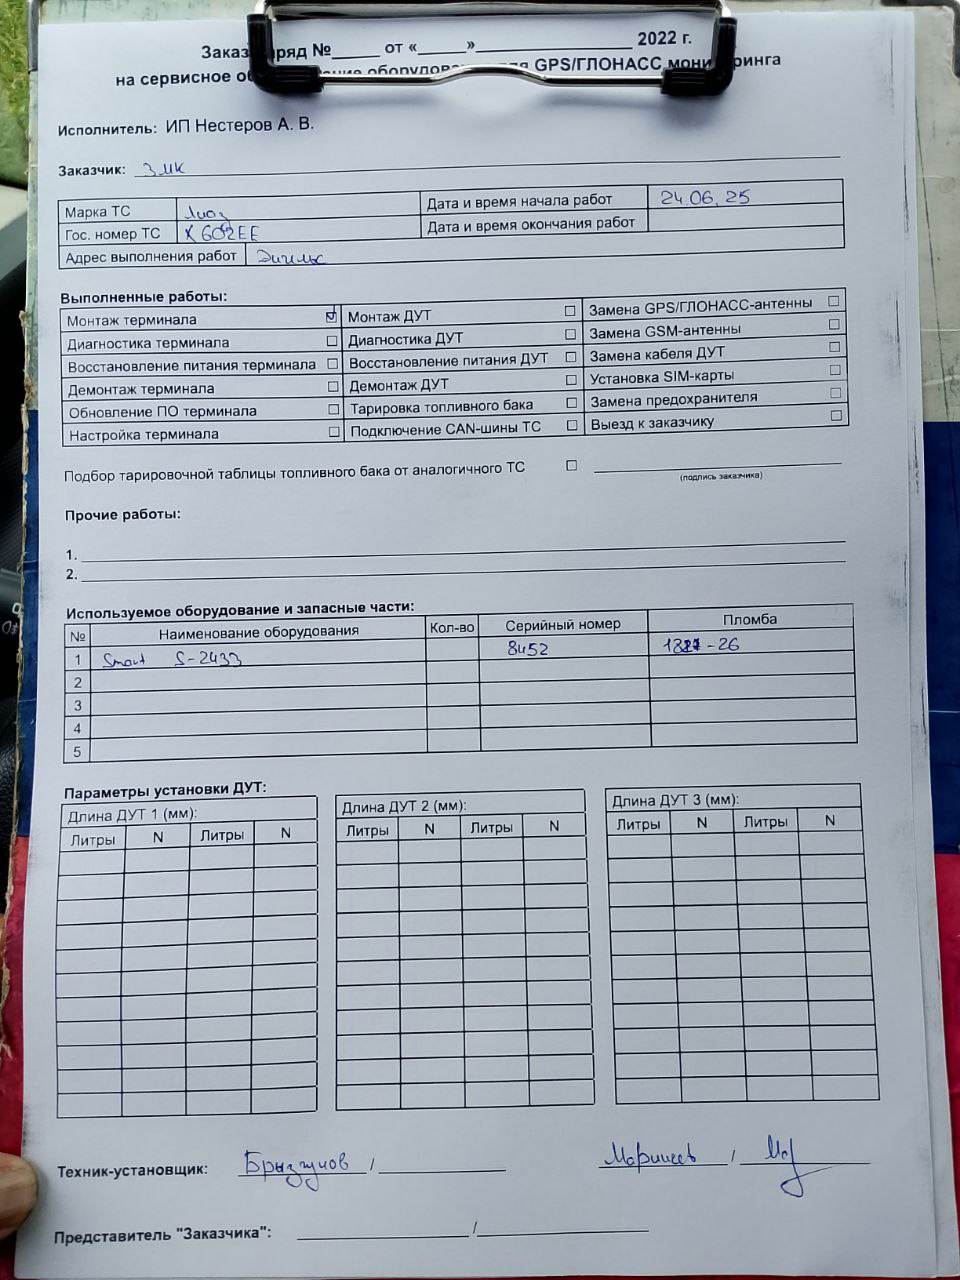 Заказ ряд №_____ от «_____»_______________ 2022 г.
на сервисное об ние оборудов я GPS/ГЛОНАСС мониторинга
Исполнитель: ИП Нестеров А. В.
Заказчик: ЗМК
Марка ТС Лиаз Дата и время начала работ 24.06.25
Гос. номер ТС Х602ЕЕ Дата и время окончания работ
Адрес выполнения работ
Выполненные работы:
Монтаж терминала ☑ Монтаж ДУТ ☐ Замена GPS/ГЛОНАСС-антенны ☐
Диагностика терминала ☐ Диагностика ДУТ ☐ Замена GSM-антенны ☐
Восстановление питания терминала ☐ Восстановление питания ДУТ ☐ Замена кабеля ДУТ ☐
Демонтаж терминала ☐ Демонтаж ДУТ ☐ Установка SIM-карты ☐
Обновление ПО терминала ☐ Тарировка топливного бака ☐ Замена предохранителя ☐
Настройка терминала ☐ Подключение CAN-шины ТС ☐ Выезд к заказчику ☐
Подбор тарировочной таблицы топливного бака от аналогичного ТС ☐
(подпись заказчика)
Прочие работы:
1.
2.
Используемое оборудование и запасные части:
№ Наименование оборудования Кол-во Серийный номер Пломба
1 Smart S-2433 8452 -26
2
3
4
5
Параметры установки ДУТ:
Длина ДУТ 1 (мм): Длина ДУТ 2 (мм): Длина ДУТ 3 (мм):
Литры N Литры N Литры N Литры N Литры N Литры N
Техник-установщик: Брызгунов /
Представитель "Заказчика": /